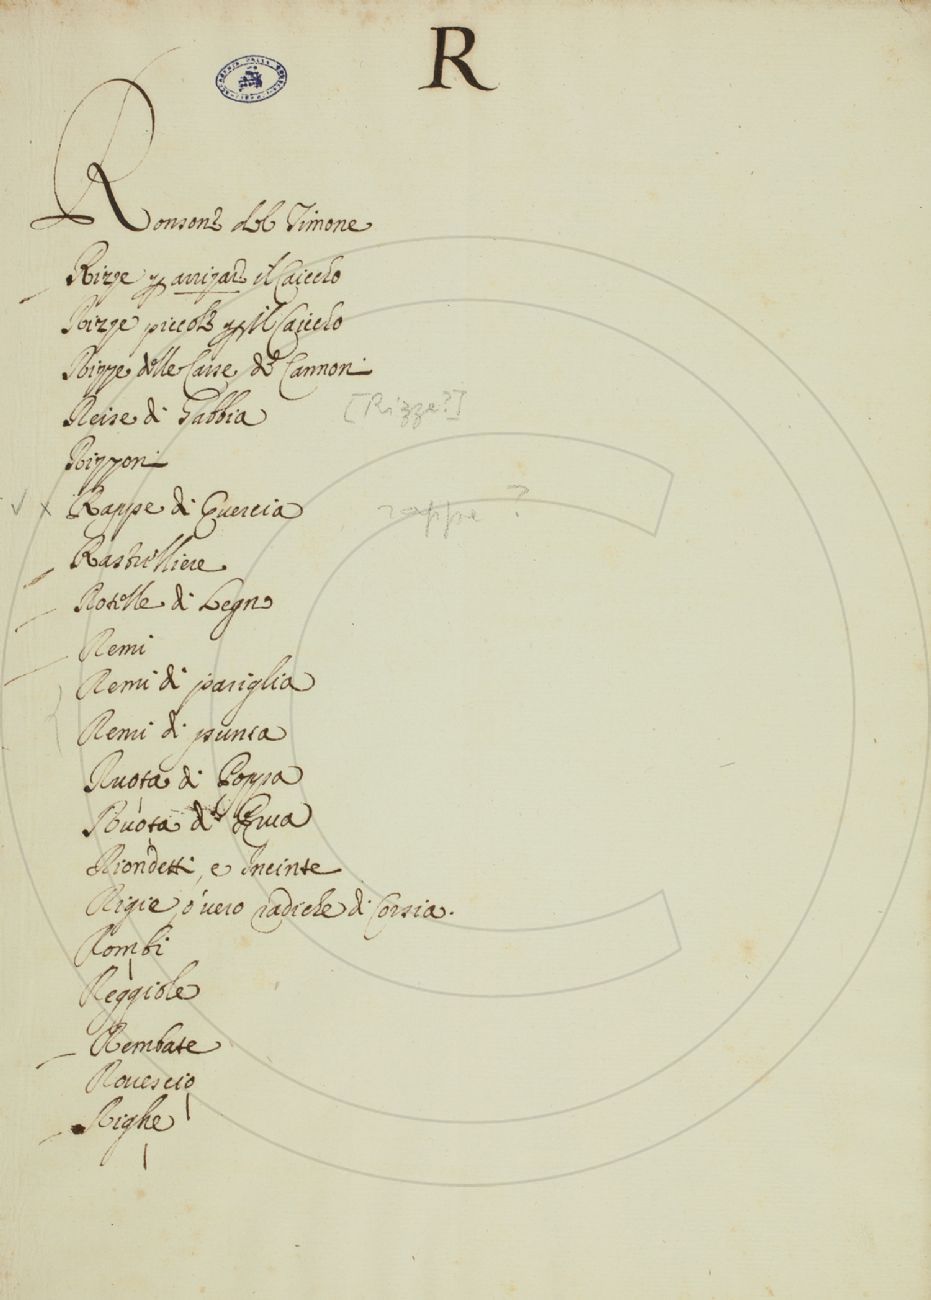 R
Ronsone del Timone
Rizze p arrizare il Caiccho
Rizze piccole p il Caiccho
Rizze delle Casse de Cannoni
Reise di Gabbia [Rizze?]
Rizzoni
Rappe di Quercia rappe ?
Rastrelliere
Rotelle di Legno
Remi
Remi di pariglia
Remi di punta
Ruota di Poppa
Ruota di Prua
Riondetti, e Incinte
Rigie o vero radiche di Corsia.
Rombi
Reggiole
Rembate
Rouescio
Righe